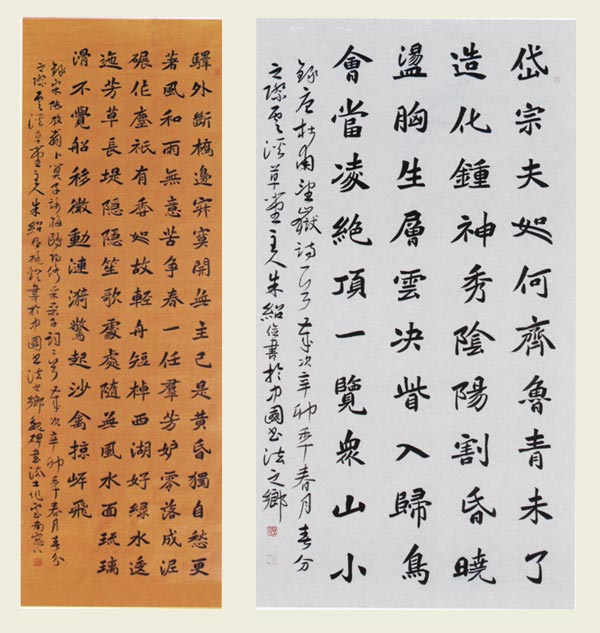 驛外斷橋邊寂寞開無主已是黃昏獨自愁更
著風和雨無意苦争春一任羣芳妒零落成泥
碾作塵祇有香如故輕舟短棹西湖好綠水逶
迤芳草長堤隱隱笙歌處處隨無風水面琉璃
滑不覺船移微動漣漪驚起沙禽掠岸飛
錄宋陸放翁卜算子詠梅歐陽修采桑子詞二首歲次辛卯年春月春分
之際雲溪草堂主人朱紹書於中國書法之鄉魏碑書法工作室南窗
岱宗夫如何齊魯青未了
造化鍾神秀陰陽割昏曉
盪胸生層雲决眥入歸鳥
會當凌絕頂一覽衆山小
錄唐杜甫望嶽詩一首歲次辛卯年春月春分
之際雲溪草堂主人朱紹書於中國書法之鄉